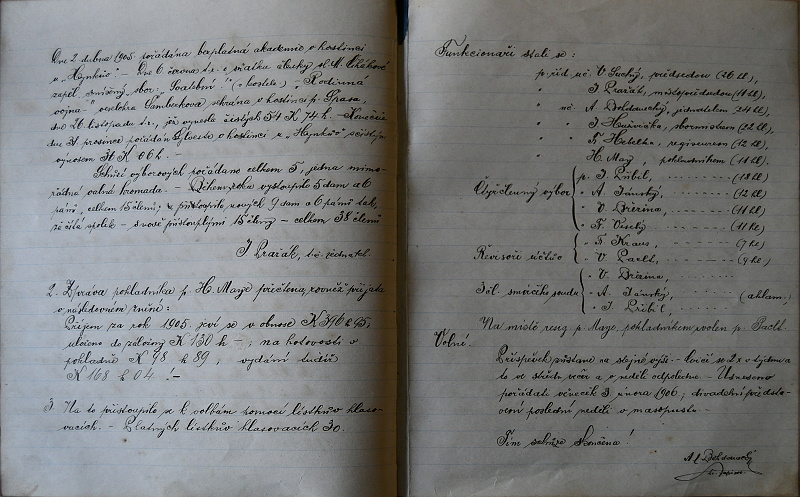 Dne 2. dubna 1905 pořádána bezplatná akademie v hostinci
u „Hynků“. – Dne 6. června t.r. u sňatku člensky sl. M. Cihákové
zapěl smíšený sbor: „Svatební“
vojna“ – veselohra Samberkova sehrána v hostinci p. Spasa,
dne 26 listopadu t.r., jež vynesla čistých 54 K 74 h. – Konečně
dne 31. prosince pořádán Sylvestr v hostinci u „Hynků“ s čistým
výnosem 31 K 06 h.
Schůzí výborových pořádáno celkem 5, jedna mimo-
řádná valná hromada. – Během roku vystoupilo 5 dam a 6
pánů, celkem 15 členů; přistoupilo nových 9 dam a 6 pánů tak,
že čítá spolek – s nově přistouplými 15 členy – celkem 38 členů
J Pražák, t.č. jednatel.
2. Zpráva pokladníka p. H. Maye přečtena, rovněž přijata
v následovním znění:
Příjem za rok 1905. jeví se v obnose K 396 h 95,
uloženo do záložny K 130 h –, na hotovosti v
pokladně K 98 h 89, vydání tudíž
K 168 h 04 !–
3. Na to přistoupilo se k volbám pomocí lístkův hlaso-
vacích. – Platných lístkův hlasovacích 30.
Funkcionáři stali se:
p. řid. uč. V. Suchý, předsedou (26 hl),
" J. Pražák, místopředsedou (11 hl),
" uč. A. Boldanský, jednatelem (24 hl)
" " J. sbormistrem (22 hl),
" " F. regisseurem (12 hl),
" H. May, pokladníkem (18 hl)
Čtyřčlenný výbor
p. J. Přibil, (18 hl)
" A. Jánský, (12 hl)
" V. Březina, (11 hl)
" F. Veselý (11 hl)
Revisoři účtův
" F. Kraus, (9 hl)
" V. Pachl, (9 hl)
Čl. smírčího soudu
" V. Březina,
" A. Jánský, (aklam.)
" J. Přibil,
Na místo resig. p. Maye, pokladníkem zvolen p. Pachl.
Volné.
Příspěvek zůstane na stejné výši. – Cvičí se 2x v týdnu a
to ve středu večer a v neděli odpoledne. – Usneseno
pořádati věneček 3. února 1906, divadelní předsta-
vení poslední neděli v masopustu.
Tím schůze skončena!